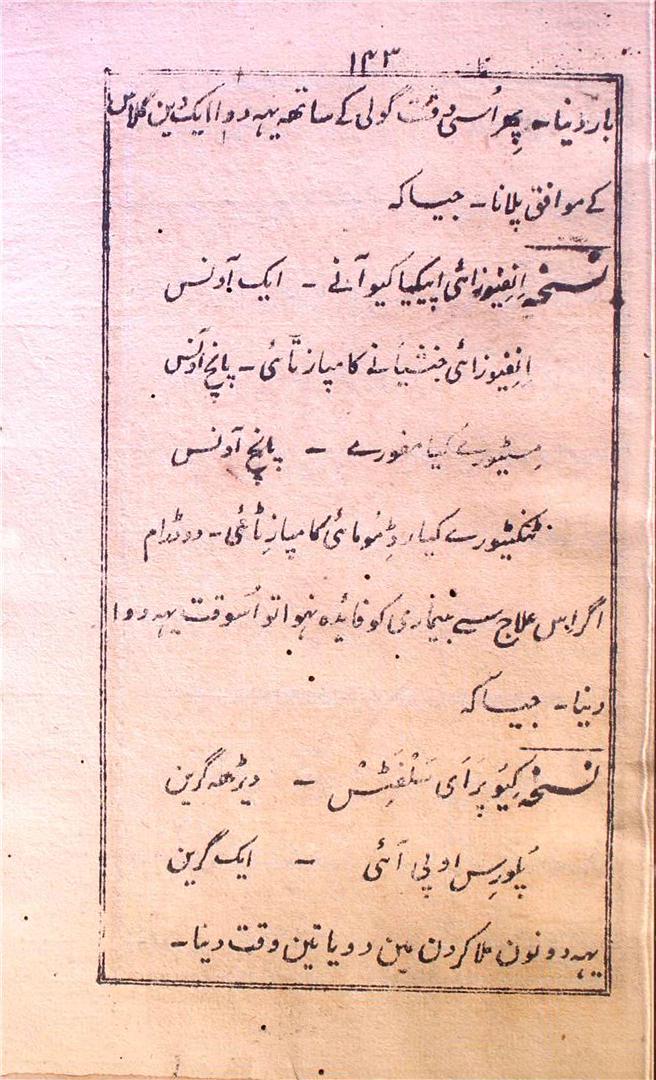 ۱۴۳
بار دینا۔ پھر اُسی وقت گولی کے ساتھ یہہ دوا ایک وین گلاس
کے موافق پلانا۔ جیسا کہ
نسخہ اِنفیوزائی اپیکیا کیوآنے ۔ ایک آونس
اِنفیوزائی جنشیانے کامپازٹائی ۔ پانچ آونس
مِسٹیورے کیامفورے ۔ پانچ آونس
ٹنکٹیورے کیارڈِمُومائی کامپازِٹائی ۔ دو ڈرام
اگر اِس علاج سے بیماری کو فائدہ نہوا تو اُسوقت یہہ دوا
دینا۔ جیسا کہ
نسخہ کیُوپرَای سَلفَیٹِس ۔ دیڑھ گرین
پَلورِس اوپی آئی ۔ ایک گرین
یہہ دونون ملا کر دن مین دو یا تین وقت دینا۔